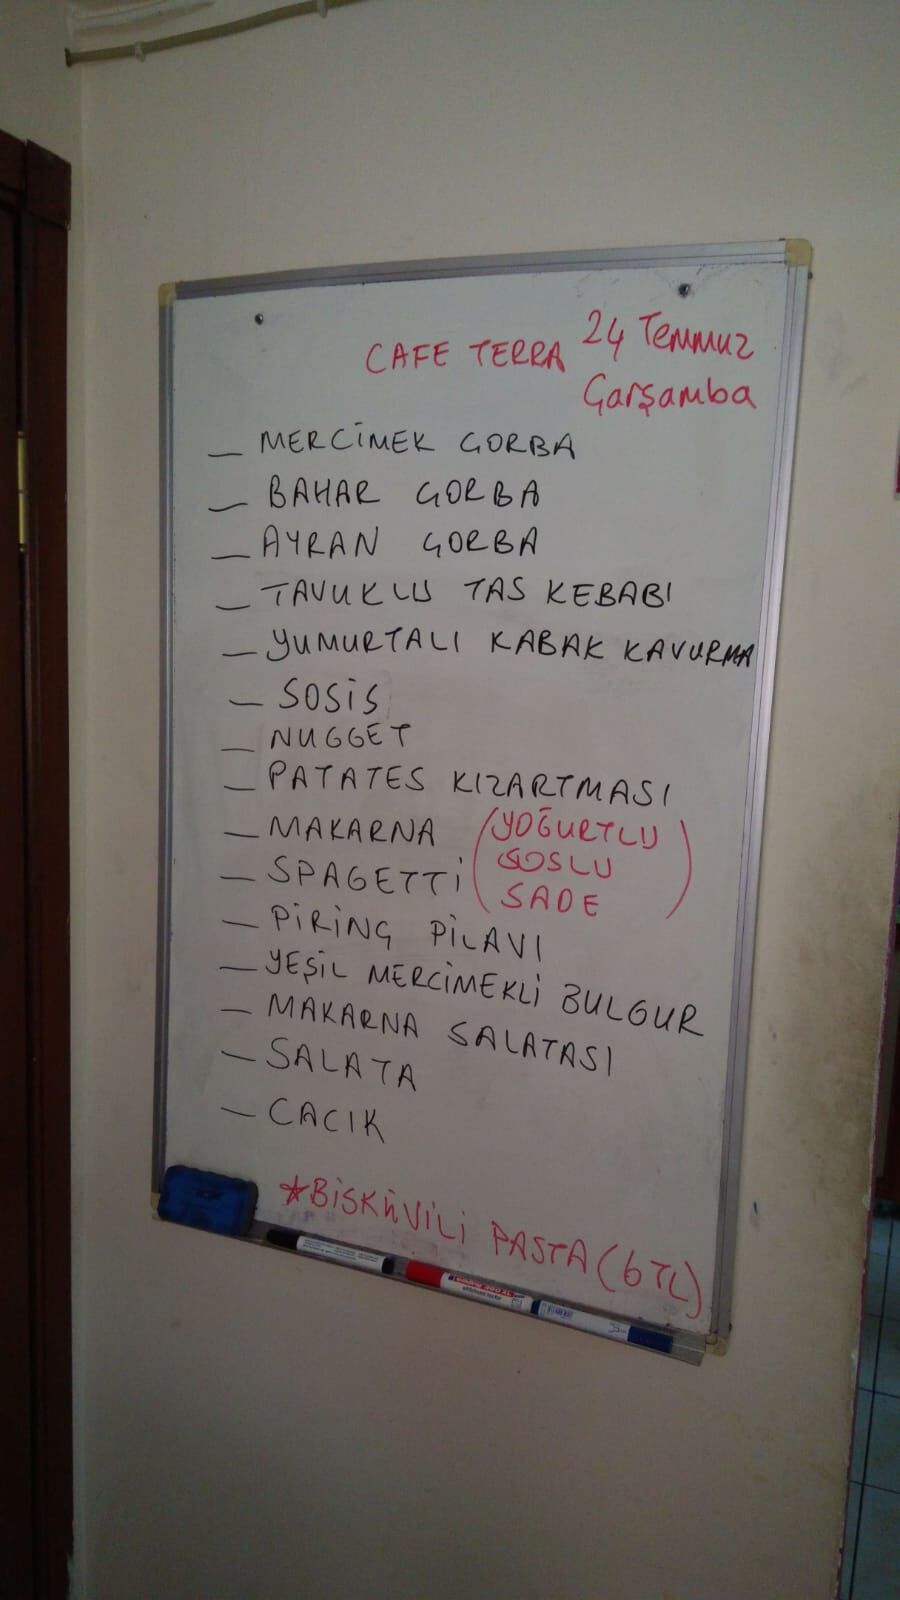 CAFE TERRA 24 Temmuz
Çarşamba
— MERCİMEK ÇORBA
— BAHAR ÇORBA
— AYRAN ÇORBA
— TAVUKLU TAS KEBABI
— YUMURTALI KABAK KAVURMA
— SOSİS
— NUGGET
— PATATES KIZARTMASI
— MAKARNA (YOĞURTLU
SOSLU
— SPAGETTİ SADE)
— PİRİNÇ PİLAVI
— YEŞİL MERCİMEKLİ BULGUR
— MAKARNA SALATASI
— SALATA
— CACIK
*BİSKÜVİLİ PASTA (6 TL)